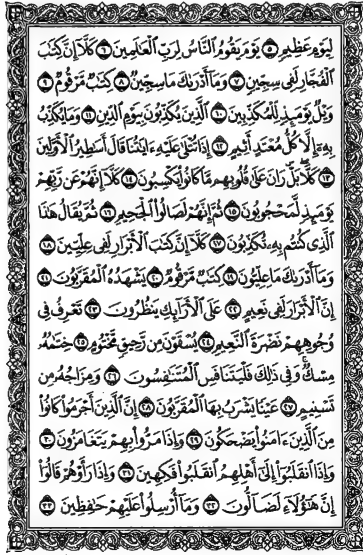 لِيَوْمٍ عَظِيمٍ ۝٥ يَوْمَ يَقُومُ النَّاسُ لِرَبِّ الْعَالَمِينَ ۝٦ كَلَّا إِنَّ كِتَابَ
الْفُجَّارِ لَفِي سِجِّينٍ ۝٧ وَمَا أَدْرَاكَ مَا سِجِّينٌ ۝٨ كِتَابٌ مَرْقُومٌ ۝٩
وَيْلٌ يَوْمَئِذٍ لِلْمُكَذِّبِينَ ۝١٠ الَّذِينَ يُكَذِّبُونَ بِيَوْمِ الدِّينِ ۝١١ وَمَا يُكَذِّبُ
بِهِ إِلَّا كُلُّ مُعْتَدٍ أَثِيمٍ ۝١٢ إِذَا تُتْلَى عَلَيْهِ آيَاتُنَا قَالَ أَسَاطِيرُ الْأَوَّلِينَ
۝١٣ كَلَّا بَلْ رَانَ عَلَى قُلُوبِهِمْ مَا كَانُوا يَكْسِبُونَ ۝١٤ كَلَّا إِنَّهُمْ عَنْ رَبِّهِمْ
يَوْمَئِذٍ لَمَحْجُوبُونَ ۝١٥ ثُمَّ إِنَّهُمْ لَصَالُوا الْجَحِيمِ ۝١٦ ثُمَّ يُقَالُ هَذَا
الَّذِي كُنْتُمْ بِهِ تُكَذِّبُونَ ۝١٧ كَلَّا إِنَّ كِتَابَ الْأَبْرَارِ لَفِي عِلِّيِّينَ ۝١٨
وَمَا أَدْرَاكَ مَا عِلِّيُّونَ ۝١٩ كِتَابٌ مَرْقُومٌ ۝٢٠ يَشْهَدُهُ الْمُقَرَّبُونَ ۝٢١
إِنَّ الْأَبْرَارَ لَفِي نَعِيمٍ ۝٢٢ عَلَى الْأَرَائِكِ يَنْظُرُونَ ۝٢٣ تَعْرِفُ فِي
وُجُوهِهِمْ نَضْرَةَ النَّعِيمِ ۝٢٤ يُسْقَوْنَ مِنْ رَحِيقٍ مَخْتُومٍ ۝٢٥ خِتَامُهُ
مِسْكٌ وَفِي ذَلِكَ فَلْيَتَنَافَسِ الْمُتَنَافِسُونَ ۝٢٦ وَمِزَاجُهُ مِنْ
تَسْنِيمٍ ۝٢٧ عَيْنًا يَشْرَبُ بِهَا الْمُقَرَّبُونَ ۝٢٨ إِنَّ الَّذِينَ أَجْرَمُوا كَانُوا
مِنَ الَّذِينَ آمَنُوا يَضْحَكُونَ ۝٢٩ وَإِذَا مَرُّوا بِهِمْ يَتَغَامَزُونَ ۝٣٠
وَإِذَا انْقَلَبُوا إِلَى أَهْلِهِمُ انْقَلَبُوا فَكِهِينَ ۝٣١ وَإِذَا رَأَوْهُمْ قَالُوا
إِنَّ هَؤُلَاءِ لَضَالُّونَ ۝٣٢ وَمَا أُرْسِلُوا عَلَيْهِمْ حَافِظِينَ ۝٣٣